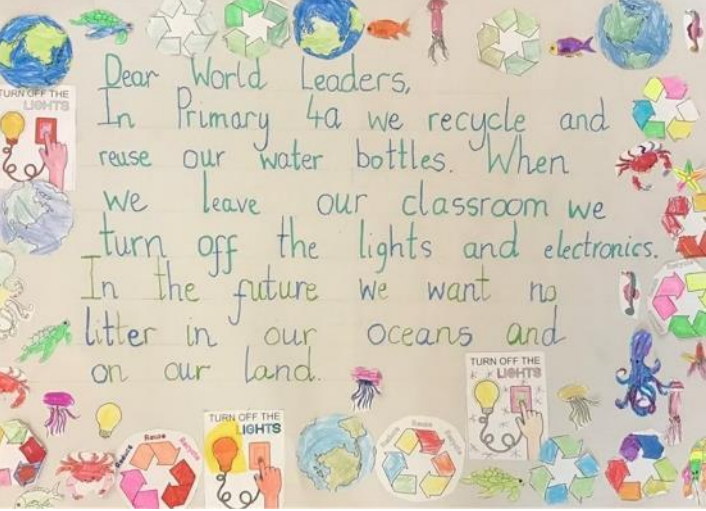 TURN OFF THE
LIGHTS
Dear World Leaders,
In Primary 4a we recycle and
reuse our water bottles. When
we leave our classroom we
turn off the lights and electronics.
In the future we want no
litter in our oceans and
on our land.
TURN OFF THE
LIGHTS
TURN OFF THE
LIGHTS
Reduce Reuse Recycle
Reduce Reuse Recycle